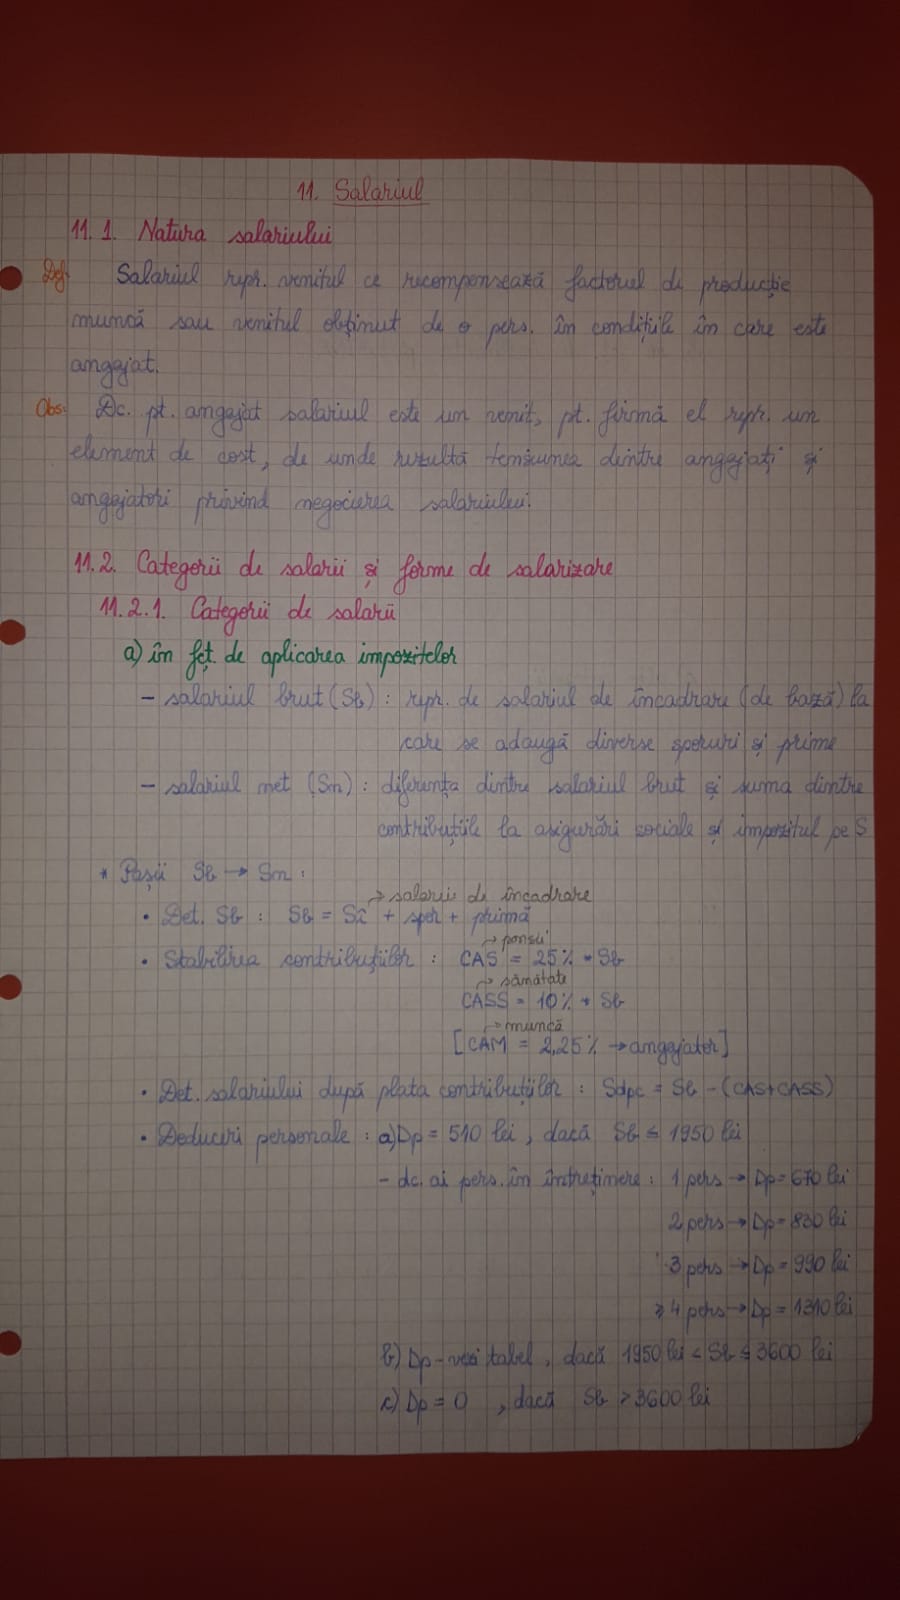 11. Salariul
11.1. Natura salariului
Def. Salariul repr. venitul ce recompensează factorul de producție
muncă sau venitul obținut de o pers. în condițiile în care este
angajat.
Obs: Dc. pt. angajat salariul este un venit, pt. firmă el repr. un
element de cost, de unde rezultă tensiunea dintre angajați și
angajatori privind negocierea salariului.
11.2. Categorii de salarii și forme de salarizare
11.2.1. Categorii de salarii
a) în fct de aplicarea impozitelor
- salariul brut (Sb) : repr. de salariul de încadrare (de bază) la
care se adaugă diverse sporuri și prime
- salariul net (Sn) : diferența dintre salariul brut și suma dintre
contribuțiile la asigurări sociale și impozitul pe S
* Pașii Sb → Sn :
→ salariu de încadrare
• Det. Sb : Sb = Sî + spor + primă
→ pensii
• Stabilirea contribuțiilor : CAS = 25% * Sb
→ sănătate
CASS = 10% * Sb
→ muncă
[CAM = 2,25% → angajator]
• Det. salariului după plata contribuțiilor : Sdpc = Sb - (CAS+CASS)
• Deduceri personale : a) Dp = 510 lei, dacă Sb ≤ 1950 lei
- dc. ai pers. în întreținere : 1 pers → Dp = 670 lei
2 pers → Dp = 830 lei
3 pers → Dp = 990 lei
≥ 4 pers → Dp = 1310 lei
b) Dp - vezi tabel, dacă 1950 lei < Sb ≤ 3600 lei
c) Dp = 0, dacă Sb > 3600 lei